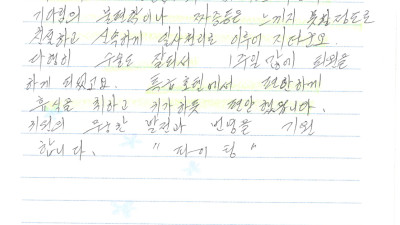 기사님의 불편함이나 짜증등은 느끼지 못할정도로
친절하고 신속하게 일사천리로 이루어 지더군요
다행히 수술도 잘되서 1주일 만에 퇴원을
하게 되었고요. 특급호텔에서 편안하게
휴식을 취하고 귀가하듯 편안했습니다.
귀원의 무궁한 발전과 번영을 기원
합니다. "파이팅"